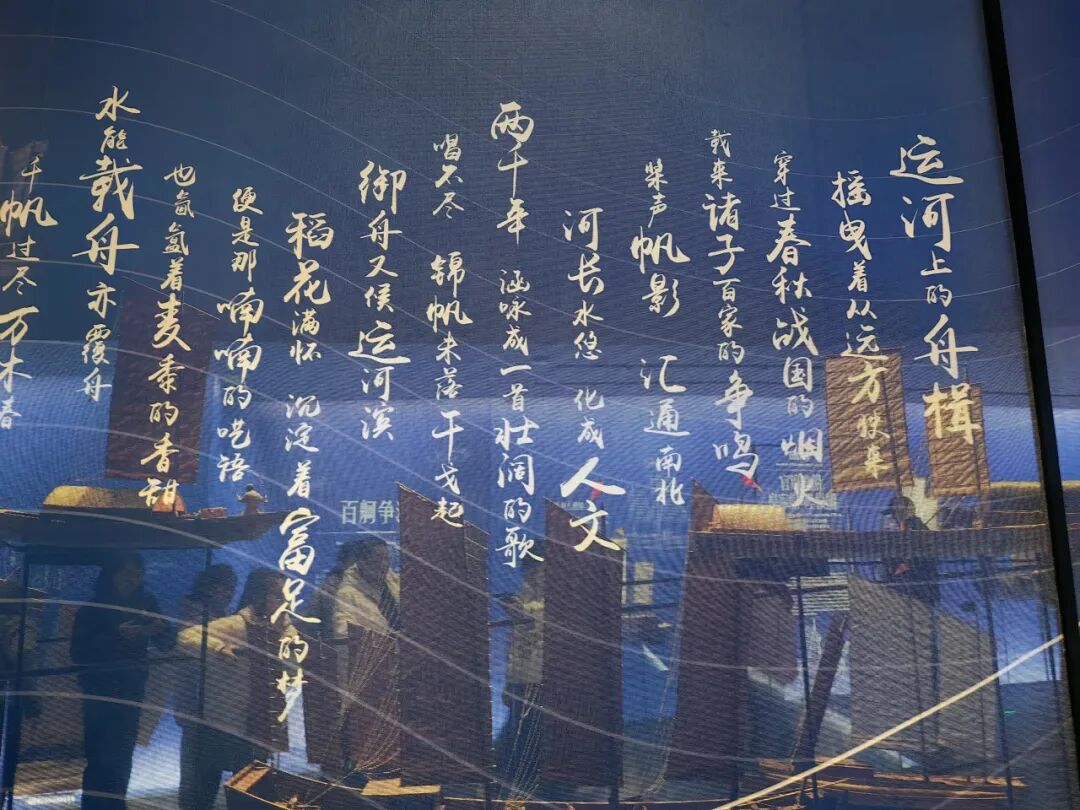 运河上的舟楫
摇曳着从远方驶来
穿过春秋战国的烟火
载来诸子百家的争鸣
桨声帆影 汇通南北
河长水悠 化成人文
两千年 涵咏成一首壮阔的歌
唱不尽 锦帆未落干戈起
御舟又候运河滨
稻花满怀 沉淀着富足的梦
便是那喃喃的呓语
也氤氲着麦黍的香甜
水能载舟亦覆舟
千帆过尽万木春
百舸争